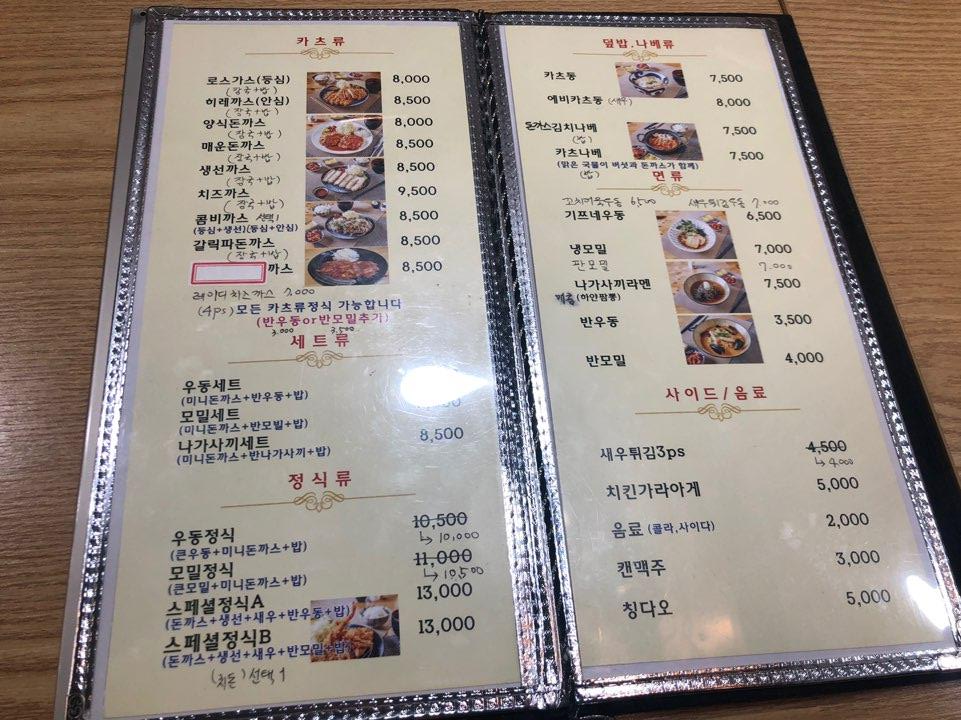 카츠류
로스가스(등심) 8,000
(장국+밥)
히레까스(안심) 8,500
(장국+밥)
양식돈까스 8,000
(장국+밥)
매운돈까스 8,500
(장국+밥)
생선까스 8,500
(장국+밥)
치즈까스 9,500
(장국+밥)
콤비까스 선택1 8,500
(등심+생선)(등심+안심)
갈릭파돈까스 8,500
(장국+밥)
까스 8,500
레이디치즈까스 7,000
(4ps) 모든 카츠류정식 가능합니다
(반우동or반모밀추가)
3,000 3,500
세트류
우동세트
(미니돈까스+반우동+밥)
모밀세트
(미니돈까스+반모밀+밥)
나가사끼세트 8,500
(미니돈까스+반나가사끼+밥)
정식류
우동정식 10,500
↳ 10,000
(큰우동+미니돈까스+밥)
모밀정식 11,000
↳ 10,500
(큰모밀+미니돈까스+밥)
스페셜정식A 13,000
(돈까스+생선+새우+반우동+밥)
스페셜정식B 13,000
(돈까스+생선+새우+반모밀+밥)
선택 1
덮밥,나베류
카츠동 7,500
에비카츠동 (새우) 8,000
돈까스김치나베 7,500
(밥)
카츠나베 7,500
(맑은 국물이 버섯과 돈까스가 함께)
(밥)
면류
6,500 새우튀김우동 7,000
기쯔네우동 6,500
냉모밀 7,000
판모밀 7,000
나가사끼라멘 7,500
(하얀짬뽕)
반우동 3,500
반모밀 4,000
사이드/음료
새우튀김3ps 4,500
↳ 4,000
치킨가라아게 5,000
음료 (콜라,사이다) 2,000
캔맥주 3,000
칭다오 5,000